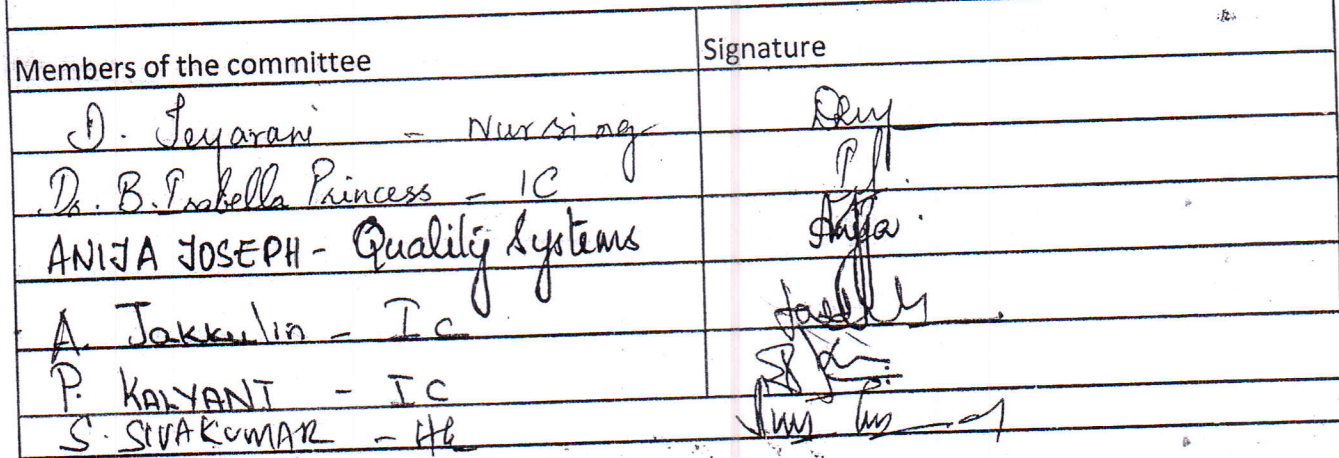 Members of the committee Signature
D. Jeyarani - Nursing
Dr. B. Isabella Princess - IC
ANIJA JOSEPH - Quality Systems Anija.
A. Jakkulin - IC
P. KALYANI - IC
S. SIVAKUMAR - HK